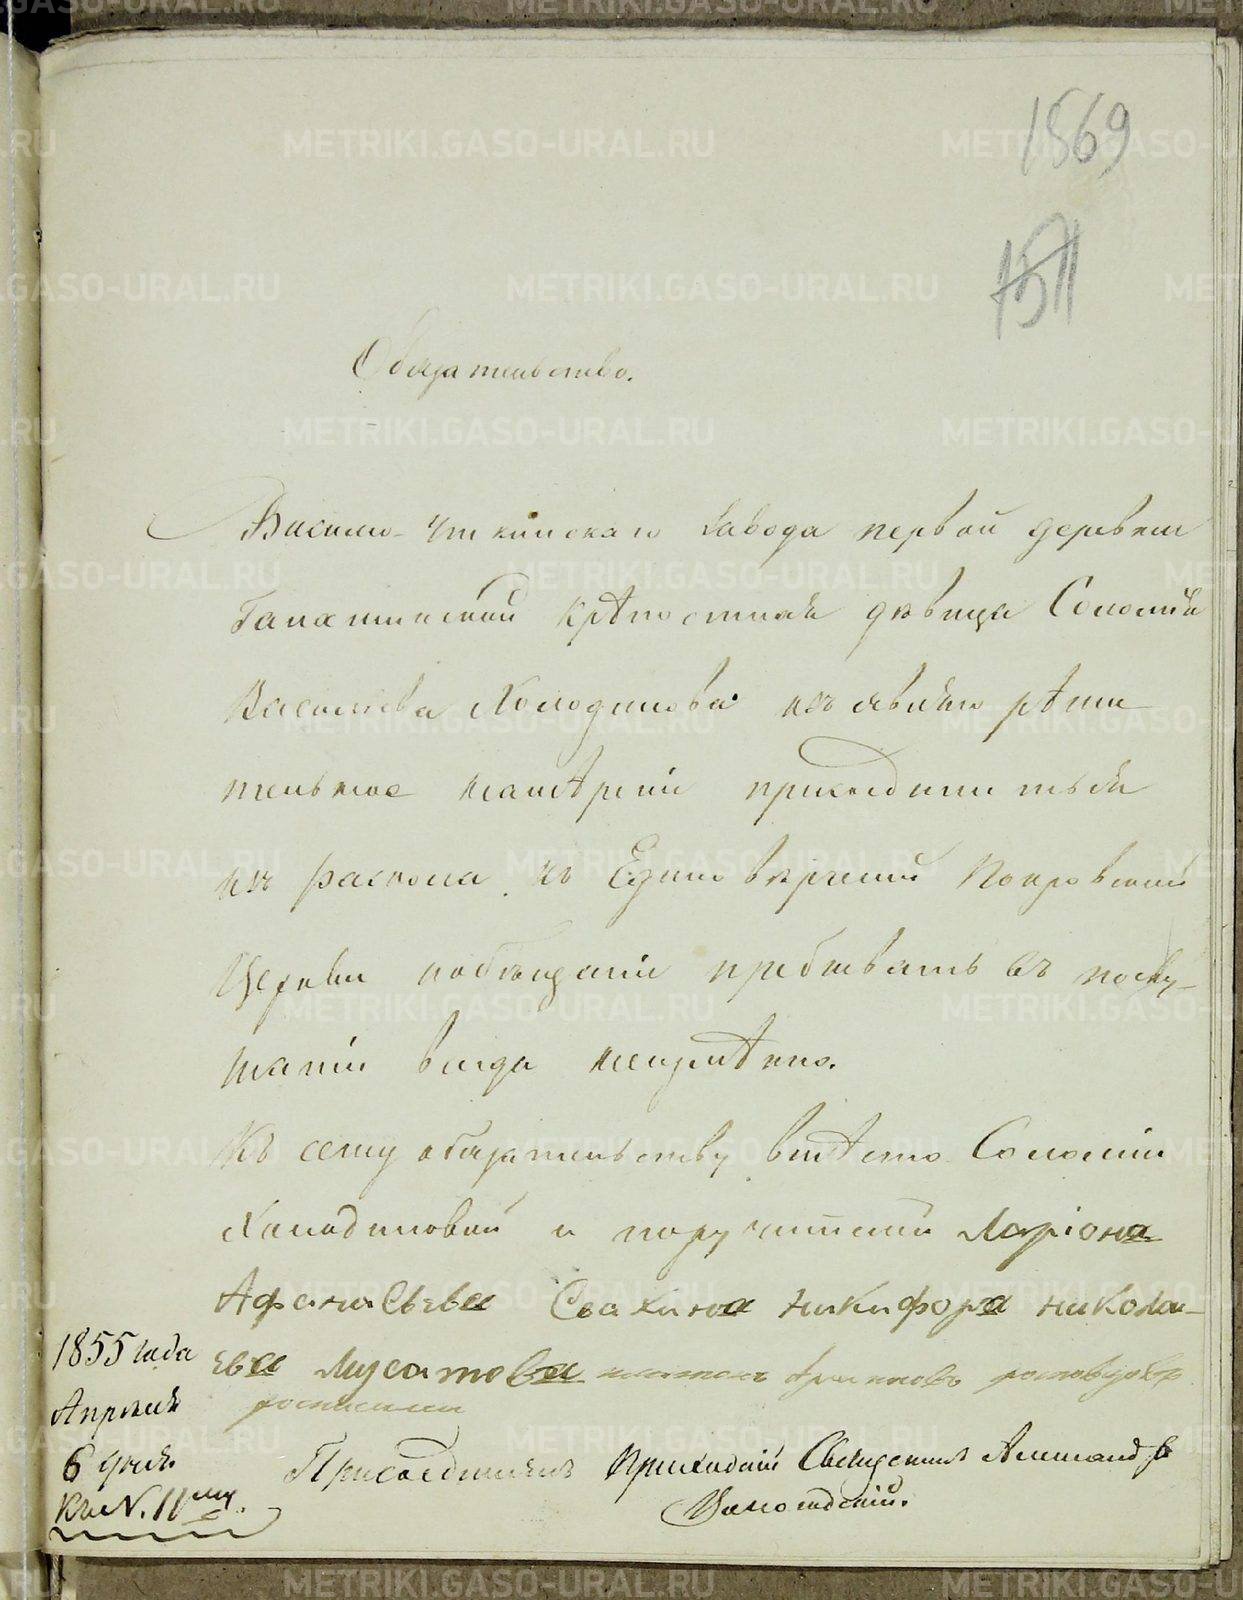 1569
1511
Обязательство.
Василио-Уткинскаго завода первой деревни
Галахтинской крѣпостная дѣвица Соломія
Васильева Холодилова изъявляю рѣши
тельное намѣреніе присоединиться
изъ раскола къ Единовѣрческой Покровской
Церкви собѣщаніи пребывать въ послу-
шаніи всегда неизмѣнно.
Къ сему обязательству вмѣсто Соломіи
Холодиловой и поручителей Ларіона
Афанасьева Никифора Никола-
ева Мусатова
росписался
Присоединилъ Приходскій Священникъ Александръ
1855 года
Апрѣля
6 дня.
къ N. 11му.
METRIKI.GASO-URAL.RU